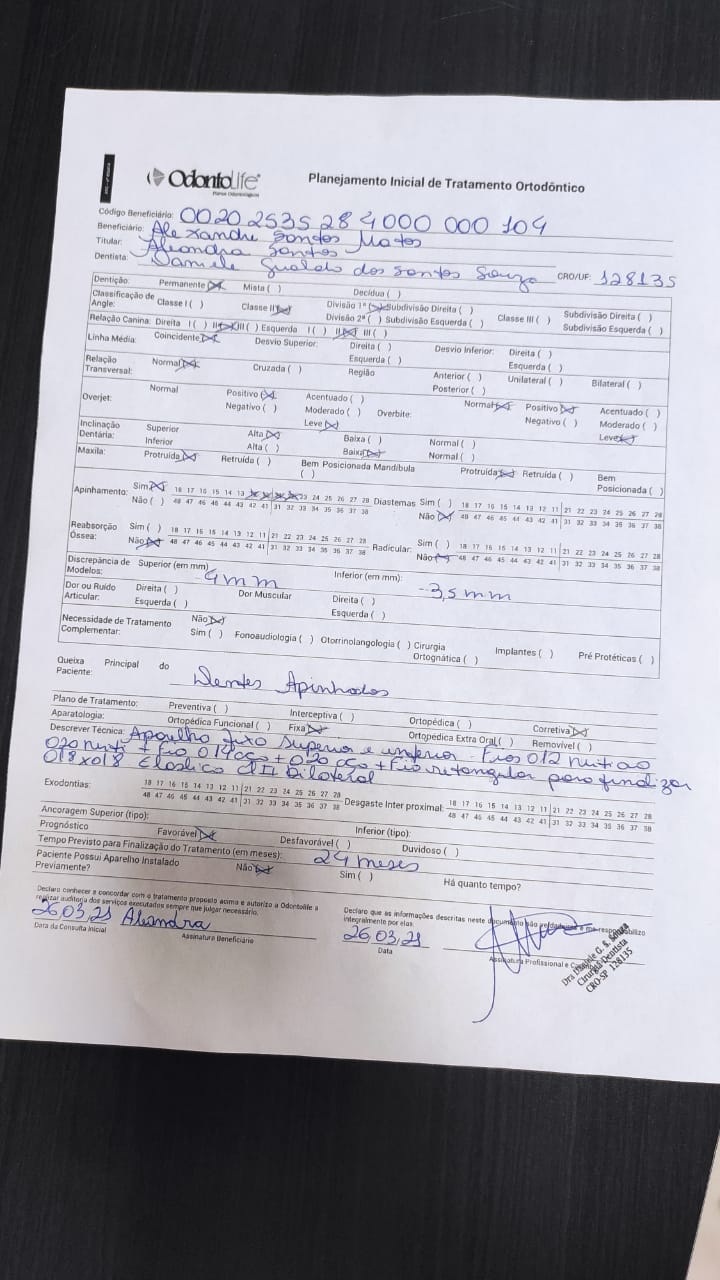 OdontoLife
Planos Odontológicos
Planejamento Inicial de Tratamento Ortodôntico
Código Beneficiário: 0020 2535 284000 000 104
Beneficiário: Alexandre Santos Matos
Titular: Aleandra Santos
Dentista: Daniele Gualdo dos Santos Souza CRO/UF: 128135
Dentição: Permanente (X) Mista ( ) Decídua ( )
Classificação de Angle: Classe I ( ) Classe II (X) Divisão 1ª (X) Subdivisão Direita ( ) Classe III ( ) Subdivisão Direita ( )
Divisão 2ª ( ) Subdivisão Esquerda ( ) Subdivisão Esquerda ( )
Relação Canina: Direita I ( ) II (X) III ( ) Esquerda I ( ) II (X) III ( )
Linha Média: Coincidente (X) Desvio Superior: Direita ( ) Desvio Inferior: Direita ( )
Esquerda ( ) Esquerda ( )
Relação Transversal: Normal (X) Cruzada ( ) Região Anterior ( ) Unilateral ( ) Bilateral ( )
Posterior ( )
Overjet: Normal Positivo (X) Acentuado ( ) Overbite: Normal (X) Positivo (X) Acentuado ( )
Negativo ( ) Moderado ( ) Negativo ( ) Moderado ( )
Leve (X) Leve (X)
Inclinação Dentária: Superior Alta (X) Baixa ( ) Normal ( )
Inferior Alta ( ) Baixa (X) Normal ( )
Maxila: Protruída (X) Retruída ( ) Bem Posicionada ( ) Mandíbula Protruída (X) Retruída ( ) Bem Posicionada ( )
Apinhamento: Sim (X) 18 17 16 15 14 13 23 24 25 26 27 28 Diastemas Sim ( ) 18 17 16 15 14 13 12 11 21 22 23 24 25 26 27 28
Não ( ) 48 47 46 45 44 43 42 41 31 32 33 34 35 36 37 38 Não (X) 48 47 46 45 44 43 42 41 31 32 33 34 35 36 37 38
Reabsorção Óssea: Sim ( ) 18 17 16 15 14 13 12 11 21 22 23 24 25 26 27 28 Radicular: Sim ( ) 18 17 16 15 14 13 12 11 21 22 23 24 25 26 27 28
Não (X) 48 47 46 45 44 43 42 41 31 32 33 34 35 36 37 38 Não (X) 48 47 46 45 44 43 42 41 31 32 33 34 35 36 37 38
Discrepância de Modelos: Superior (em mm) -4mm Inferior (em mm): -3,5 mm
Dor ou Ruído Articular: Direita ( ) Dor Muscular Direita ( )
Esquerda ( ) Esquerda ( )
Necessidade de Tratamento Complementar: Não (X)
Sim ( ) Fonoaudiologia ( ) Otorrinolangologia ( ) Cirurgia Ortognática ( ) Implantes ( ) Pré Protéticas ( )
Queixa Principal do Paciente: Dentes Apinhados
Plano de Tratamento: Preventiva ( ) Interceptiva ( ) Ortopédica ( ) Corretiva (X)
Aparatologia: Ortopédica Funcional ( ) Fixa (X) Ortopédica Extra Oral ( ) Removível ( )
Descrever Técnica: Aparelho fixo superior e inferior. Fios 012 niti ao
020 niti + Fio 014 aço + 020 aço + Fio retangular para finalizar
018x018 Elastico Cl II Bilateral
Exodontias: 18 17 16 15 14 13 12 11 21 22 23 24 25 26 27 28 Desgaste Inter proximal: 18 17 16 15 14 13 12 11 21 22 23 24 25 26 27 28
48 47 46 45 44 43 42 41 31 32 33 34 35 36 37 38 48 47 46 45 44 43 42 41 31 32 33 34 35 36 37 38
Ancoragem Superior (tipo): Inferior (tipo):
Prognóstico Favorável (X) Desfavorável ( ) Duvidoso ( )
Tempo Previsto para Finalização do Tratamento (em meses): 24 meses
Paciente Possui Aparelho Instalado Previamente? Não (X) Sim ( ) Há quanto tempo?
Declaro conhecer e concordar com o tratamento proposto acima e autorizo a Odontolife a
realizar auditoria dos serviços executados sempre que julgar necessário.
26,03,21 Aleandra
Data da Consulta Inicial Assinatura Beneficiário
Declaro que as informações descritas neste documento são verdadeiras e me responsabilizo
integralmente por elas.
26,03,21
Data Assinatura Profissional e
Dra Daniele G. S. Souza
Cirurgiã-Dentista
CRO-SP 128135